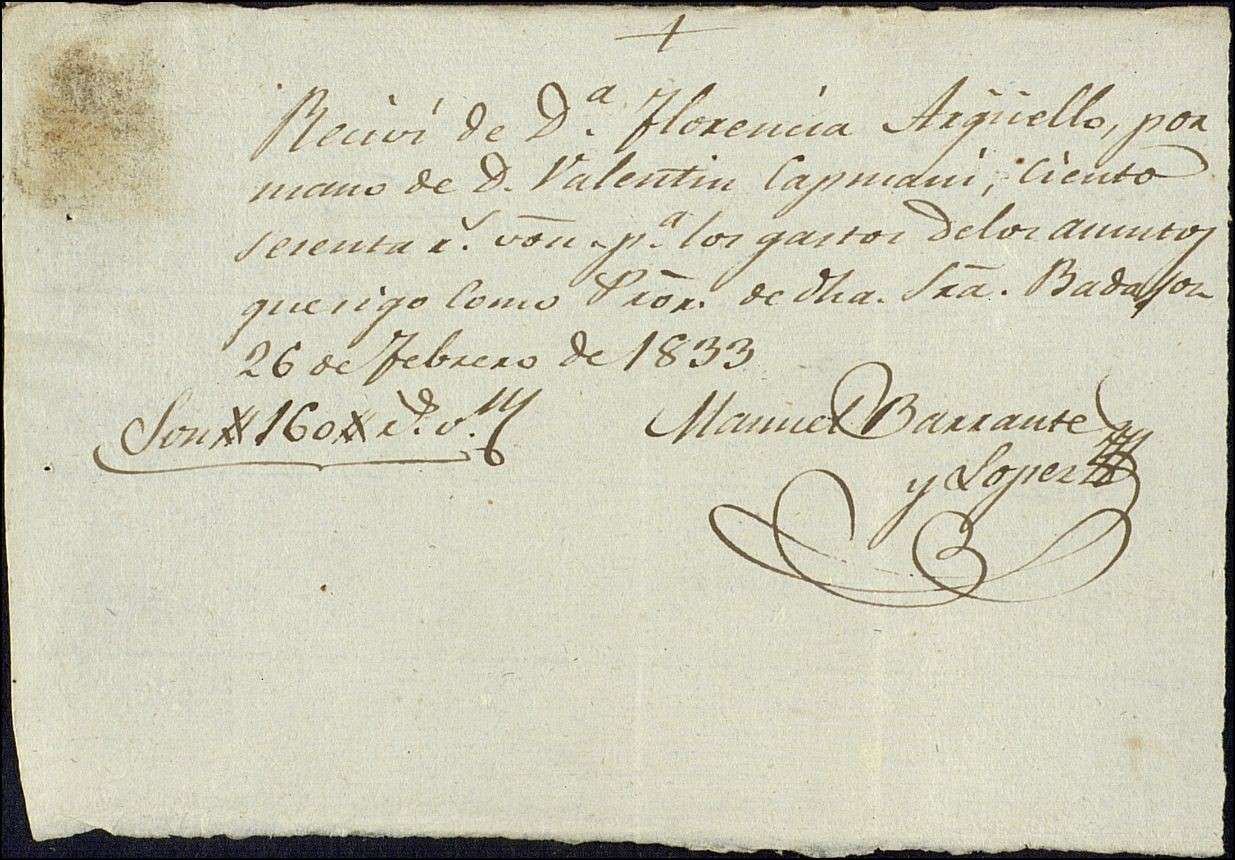 +
Recivi de D.ª Florencia Argüello, por
mano de D. Valentin Capmani, ciento
sesenta r.s von. p.ª los gastos delos asuntos
que sigo como Pror. de dha. Sra. Badajoz
26 de Febrero de 1833
Son # 160 # r.s v.n
Manuel Barrante
y Lopez